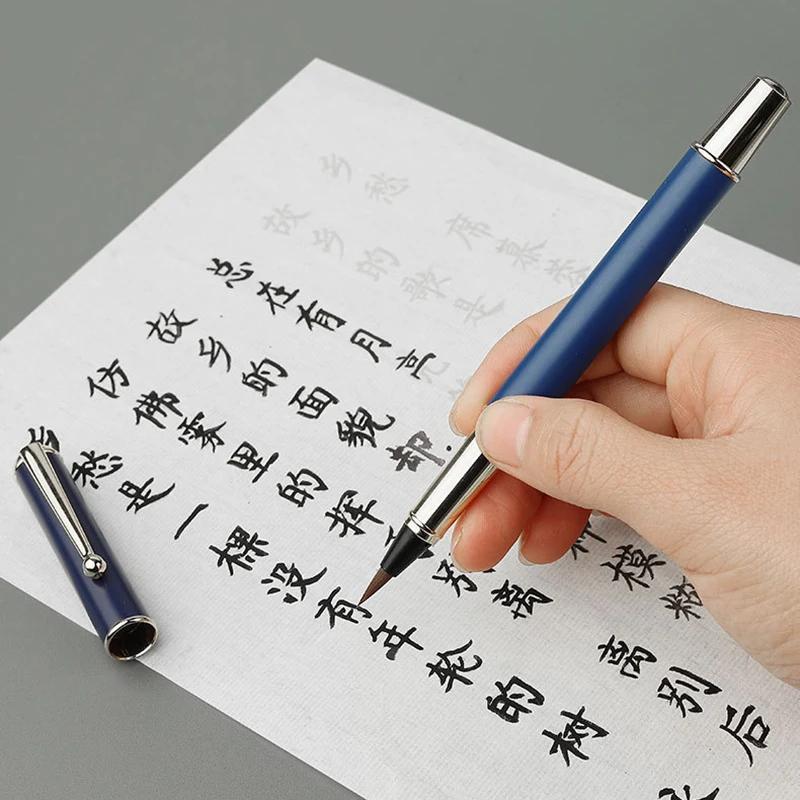 乡愁 席慕蓉
故乡的歌是
总在有月亮
故乡的面貌却 种模糊
仿佛雾里的挥 别离
离别后
乡愁是一棵没有年轮的树